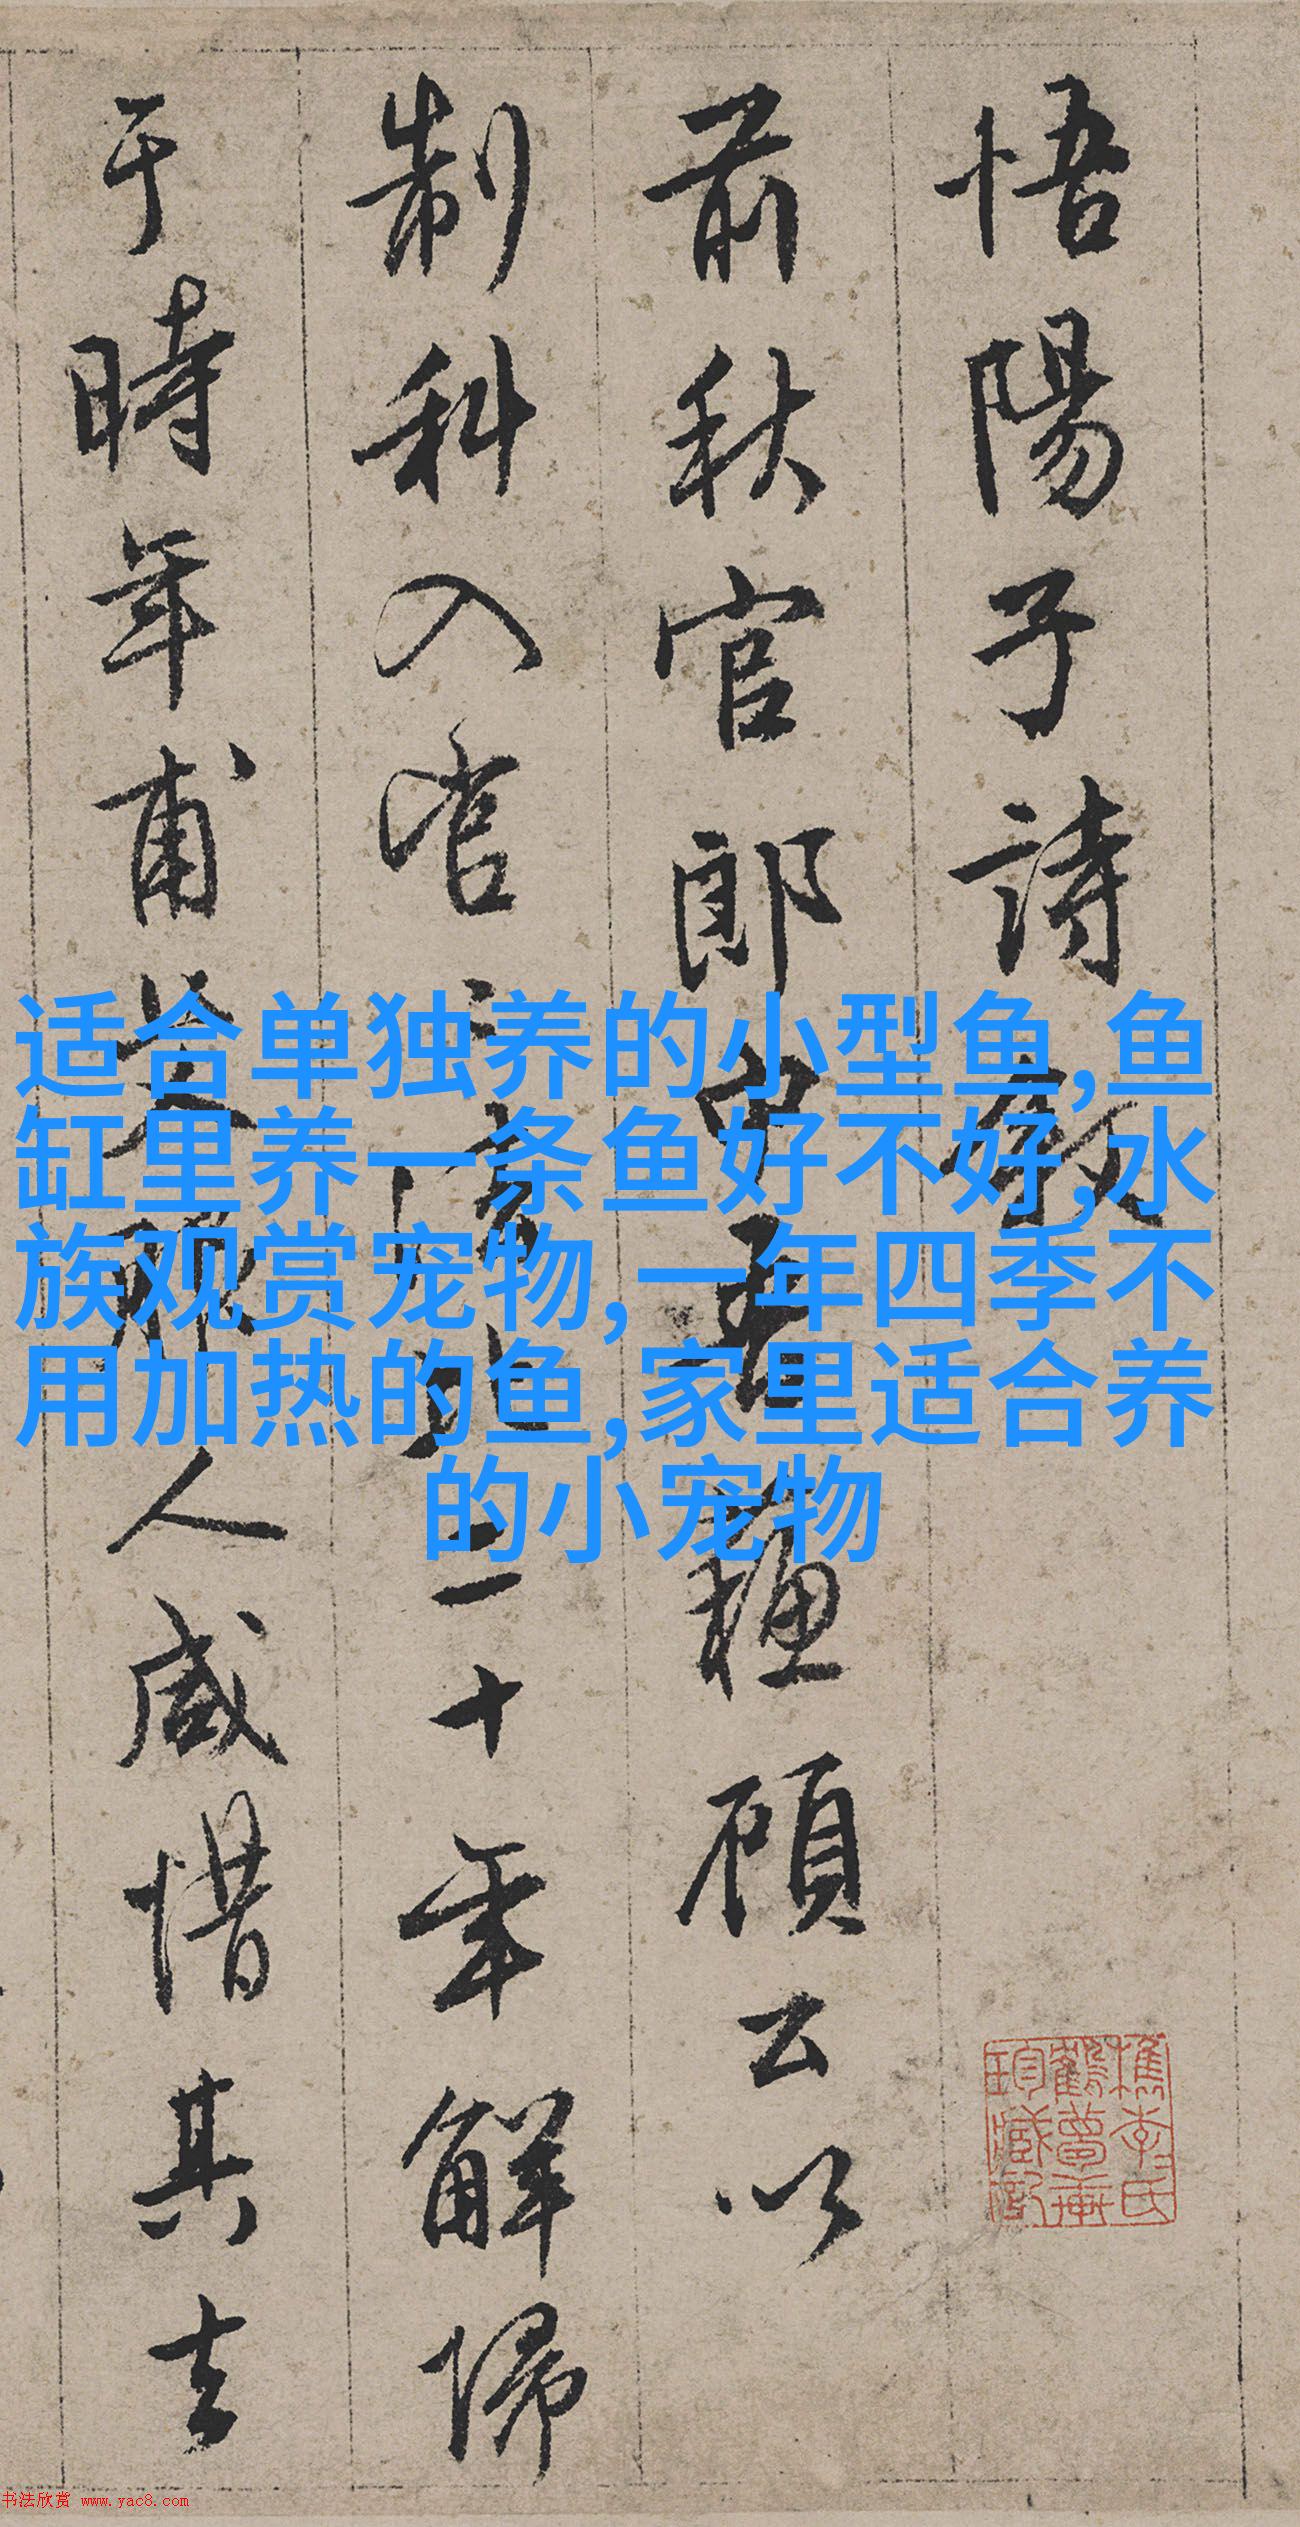 悟陽子詩敘
前秋官郎中吾蘓顧公以
制科入官
二十年解歸
于時年甫
人咸惜其去
适合单独养的小型鱼,鱼
缸里养一条鱼好不好,水
族观赏宠物,一年四季不
用加热的鱼,家里适合养
的小宠物
书法欣赏 www.yac8.com